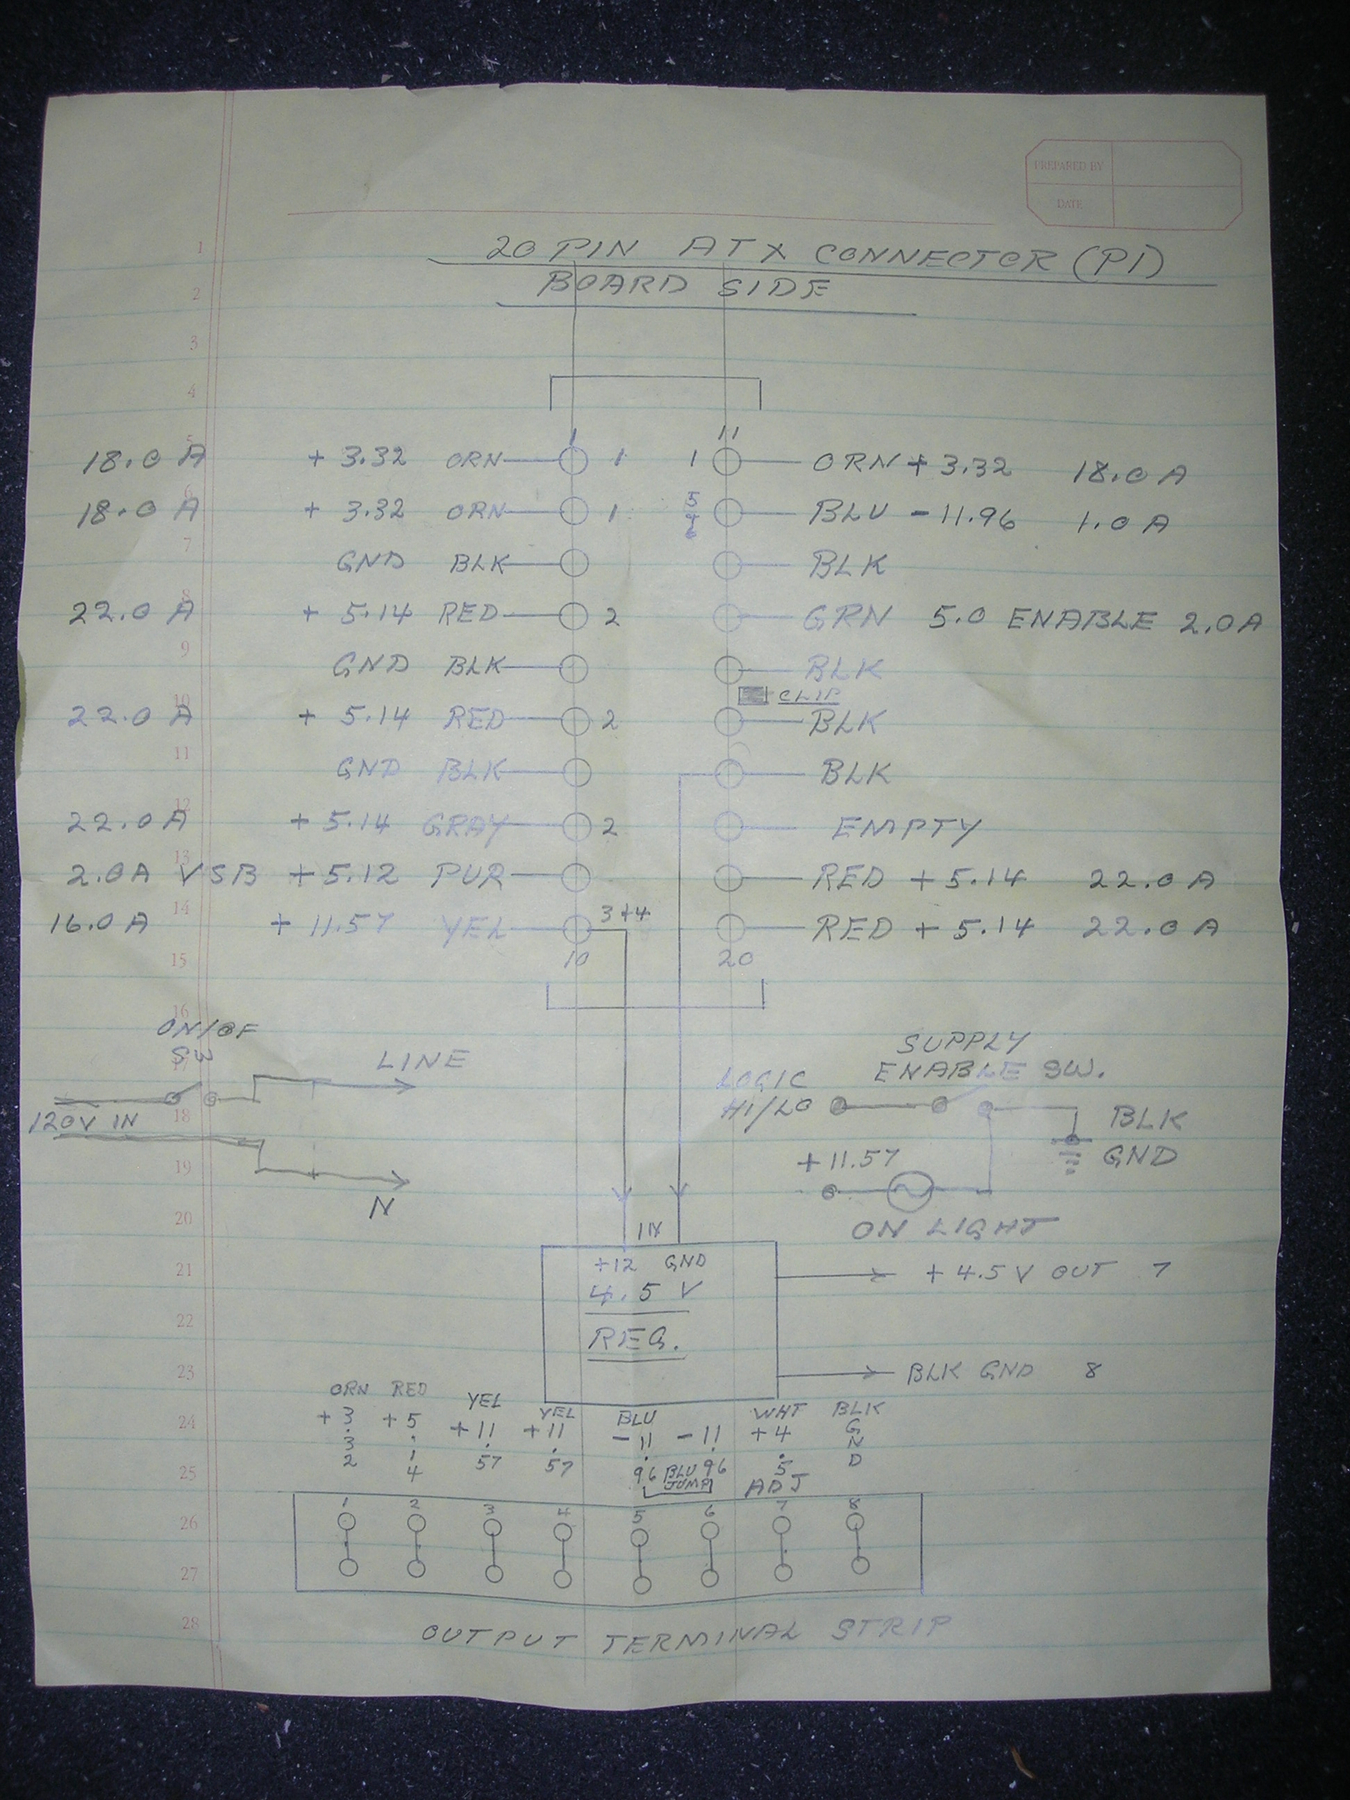 PREPARED BY
DATE
20 PIN ATX CONNECTOR (P1)
BOARD SIDE
1
2
3
4
5
6
7
8
9
10
11
12
13
14
15
16
17
18
19
20
21
22
23
24
25
26
27
28
1 11
18.0 A + 3.32 ORN 1 1 ORN + 3.32 18.0 A
18.0 A + 3.32 ORN 1 5 + 6 BLU - 11.96 1.0 A
GND BLK BLK
22.0 A + 5.14 RED 2 GRN 5.0 ENABLE 2.0 A
GND BLK BLK
CLIP
22.0 A + 5.14 RED 2 BLK
GND BLK BLK
22.0 A + 5.14 GRAY 2 EMPTY
2.0A VSB + 5.12 PUR RED + 5.14 22.0 A
16.0 A + 11.57 YEL 3+4 RED + 5.14 22.0 A
10 20
ON/OF
SW
LINE
120V IN
N
SUPPLY
ENABLE SW.
LOGIC
HI/LO
BLK
GND
+ 11.57
ON LIGHT
IN
+12 GND
4.5 V
REG.
+ 4.5 V OUT 7
BLK GND 8
ORN RED YEL YEL BLU WHT BLK
+ 3.32 + 5.14 + 11.57 + 11.57 - 11.96 - 11.96 + 4.5 GND
BLU
JUMP
ADJ
1 2 3 4 5 6 7 8
OUTPUT TERMINAL STRIP